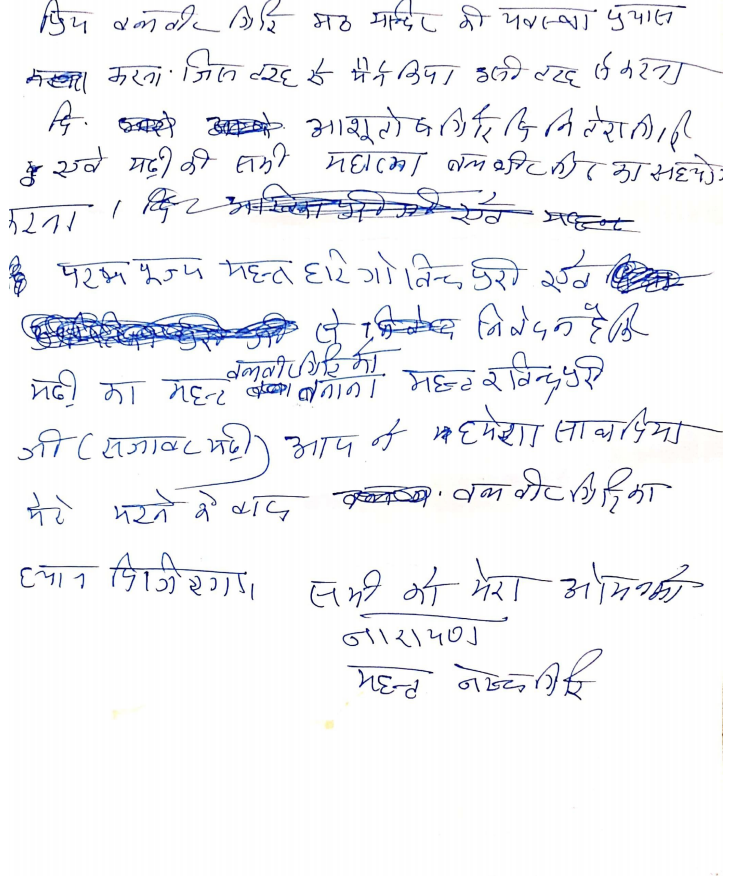 प्रिय बलवीर गिरि मठ मन्दिर की व्यवस्था प्रयास
करना. जिस तरह से मैंने किया इसी तरह से करना
आशुतोष गिरि नितेश गिरि
एवं मढ़ी की सभी महात्मा बलवीर गिरि का सहयोग
करना ।
परम पूज्य महन्त हरि गोविन्द पुरी एवं
से निवेदन है कि
मढ़ी का महन्त बलवीर गिरि को बनाना। महन्त रविन्द्र पुरी
जी (सजावट मढ़ी) आप ने हमेशा साथ दिया
मेरे मरने के बाद बलवीर गिरि का
ध्यान दिजीएगा।
सभी को मेरा ओम नमो
नारायण
महन्त नरेन्द्र गिरि